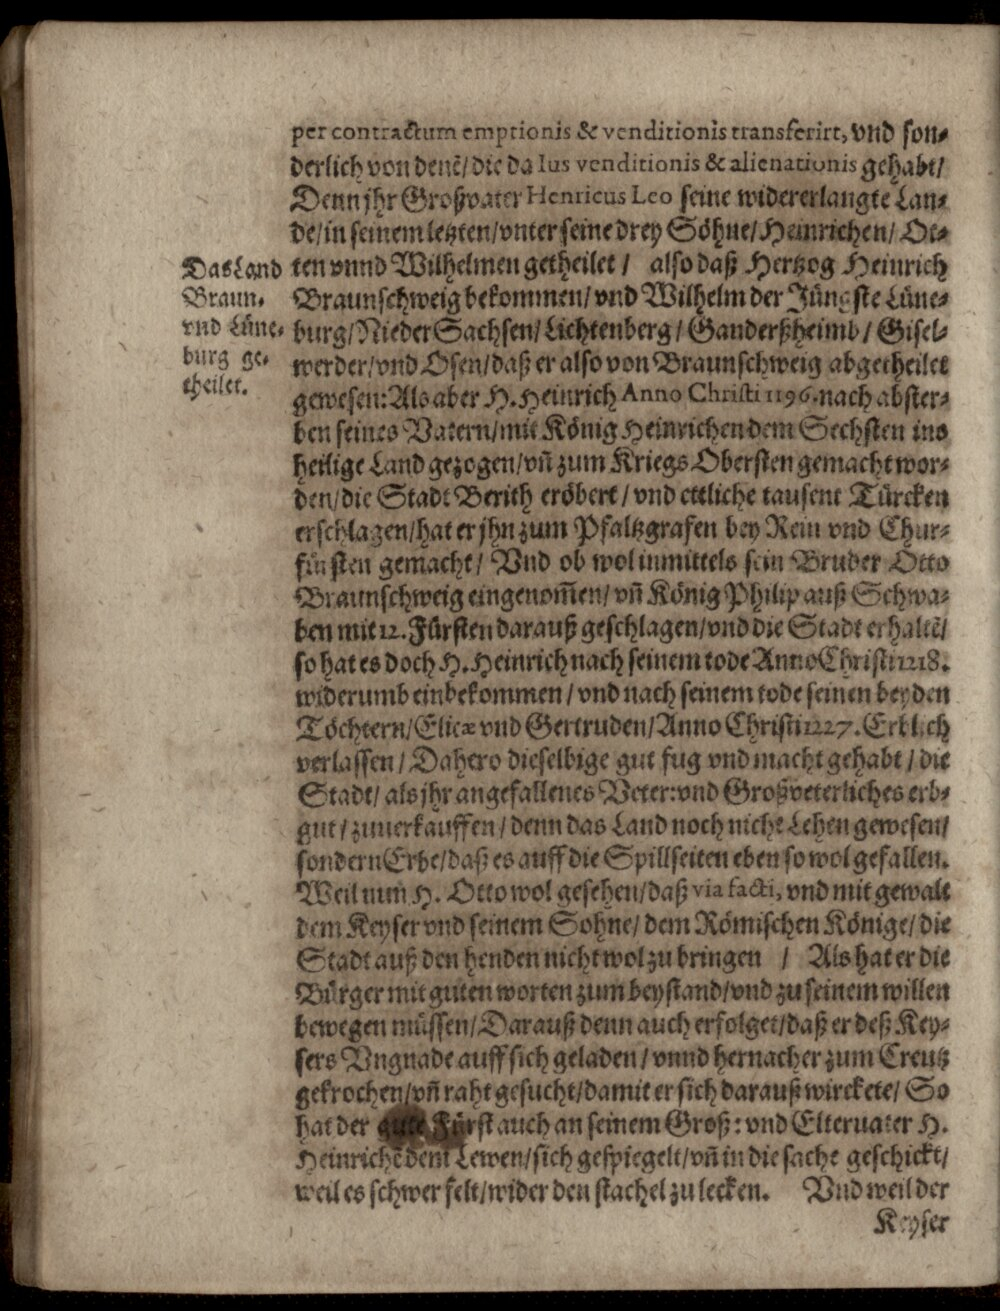 per contractum emptionis & venditionis transferirt, vnd son⸗
derlich von denẽ/ die da Ius venditionis & alienationis gehabt/
Denn jhr Großvater Henricus Leo seine widererlangte Lan⸗
de/ in seinem letzten/ vnter seine drey Söhne/ Heinrichen/ Ot⸗
ten vnnd Wilhelmen getheilet / also daß Hertzog Heinrich
Braunschweig bekommen/ vnd Wilhelm der Jüngste Lüne⸗
burg/ Nieder Sachsen/ Lichtenberg / Ganderßheimb / Gisel⸗
werder/ vnd Osen/ daß er also von Braunschweig abgetheilet
gewesen: Als aber H. Heinrich Anno Christi 1196. nach abster⸗
ben seines Vatern/ mit König Heinrichen dem Sechsten ins
heilige Land gezogen/ vñ zum Kriegs Obersten gemacht wor⸗
den/ die Stadt Berith eröbert / vnd ettliche tausent Türcken
erschlagen/ hat er jhn zum Pfaltzgrafen bey Rein vnd Chur⸗
fürsten gemacht/ Vnd ob wol inmittels sein Bruder Otto
Braunschweig eingenom̃en/ vñ König Philip auß Schwa⸗
ben mit 12. Fürsten darauß geschlagen/ vnd die Stadt erhaltẽ/
so hat es doch H. Heinrich nach seinem tode Anno Christi 1218.
widerumb einbekommen / vnd nach seinem tode seinen beyden
Töchtern/ Elicæ vnd Gertruden/ Anno Christi 1227. Erblich
verlassen / Dahero dieselbige gut fug vnd macht gehabt / die
Stadt/ als jhr angefallenes Veter: vnd Großveterliches erb⸗
gut / zuuerkauffen / denn das Land noch nicht Lehen gewesen/
sondern Erbe/ daß es auff die Spillseiten eben so wol gefallen.
Weil nun H. Otto wol gesehen/ daß via facti, vnd mit gewalt
dem Keyser vnd seinem Sohne/ dem Römischen Könige/ die
Stadt auß den henden nicht wol zu bringen / Als hat er die
Bürger mit guten worten zum beystand/ vnd zu seinem willen
bewegen müssen/ Darauß denn auch erfolget/ daß er deß Key⸗
sers Vngnade auff sich geladen / vnnd hernacher zum Creutz
gekrochen/ vñ raht gesucht/ damit er sich darauß wirckete/ So
hat der gute Fürst auch an seinem Groß: vnd Elteruater H.
Heinrichẽ dem Lewen/ sich gespiegelt/ vñ in die sache geschickt/
weil es schwer felt/ wider den stachel zu lecken. Vnd weil der
Keyser
Das Land
Braun⸗
vnd Lüne⸗
burg ge⸗
theilet.